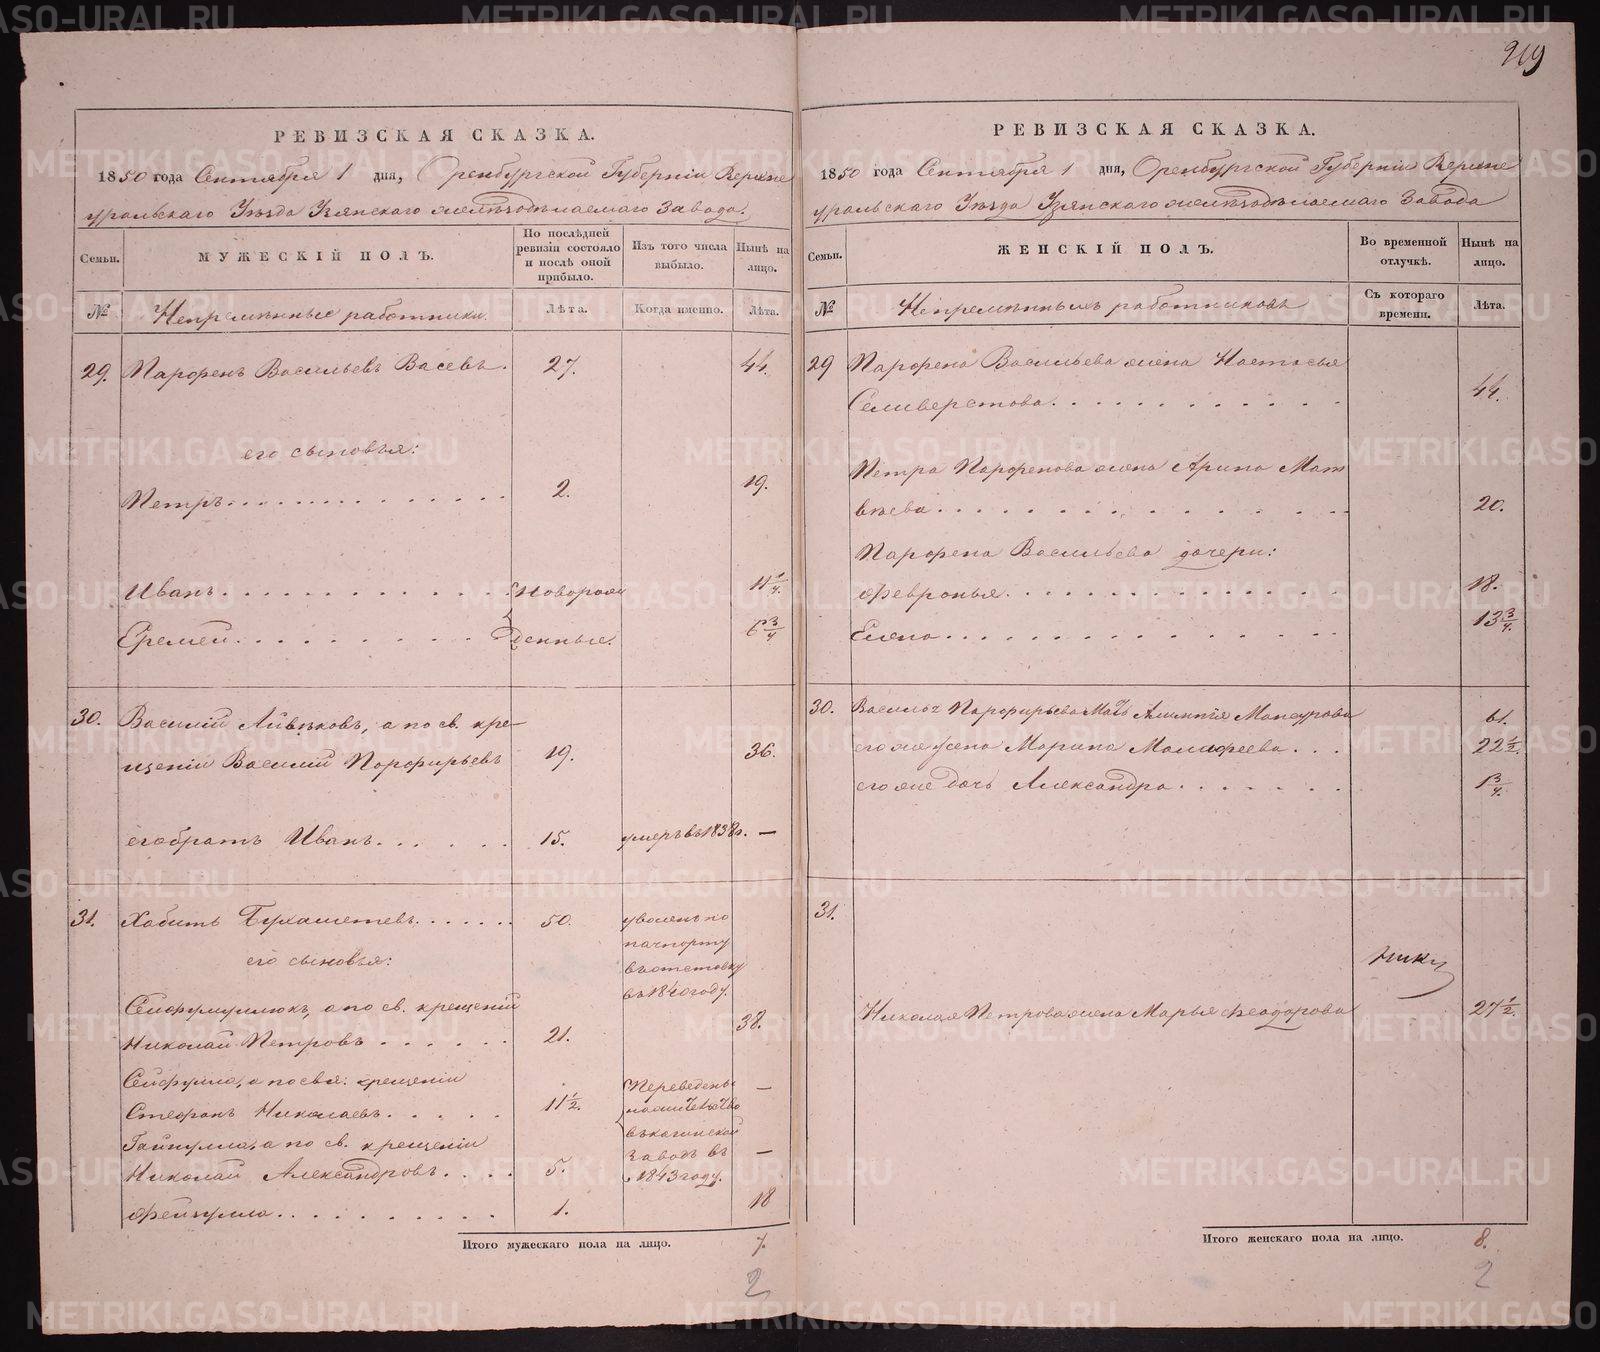 219
РЕВИЗСКАЯ СКАЗКА.
1850 года Сентября 1 дня, Оренбургской Губерніи Верхне
уральскаго Уѣзда Узянскаго желѣзодѣлаемаго Завода.
Семьи.
МУЖЕСКІЙ ПОЛЪ.
По послѣдней ревизіи состояло и послѣ оной прибыло.
Изъ того числа выбыло.
Нынѣ на лицо.
№
Непремѣнные работники.
Лѣта.
Когда именно.
Лѣта.
29. Парфенъ Васильевъ Васевъ. 27. 44.
его сыновья:
Петръ. 2. 19.
Иванъ. Новорож 11 1/4.
Еремей. денные. 6 3/4
30. Василій Айвѣковъ, а по св. кре-
щеніи Василій Порфирьевъ 19. 36.
его братъ Иванъ. 15. умеръ въ 1838 г. —
31. Хабитъ Бухаметевъ. 50. уволенъ по
пачпорту
въ отставку
въ 1840 году.
его сыновья:
Сейфумулюкъ, а по св. крещеніи
Николай Петровъ 21. 38.
Сейфулла, а по свя. крещеніи
Стефанъ Николаевъ. 11 1/2. —
Гайнулла, а по св. крещеніи
Николай Александровъ. 5. —
Переведены
въ кагинской
заводъ въ
1843 году.
Фейзулла. 1. 18
Итого мужескаго пола на лицо. 7.
2
РЕВИЗСКАЯ СКАЗКА.
1850 года Сентября 1 дня, Оренбургской Губерніи Верхне
уральскаго Уѣзда Узянскаго желѣзодѣлаемаго Завода
Семьи.
ЖЕНСКІЙ ПОЛЪ.
Во временной отлучкѣ.
Нынѣ на лицо.
№
Непремѣнныхъ работниковъ
Съ котораго времени.
Лѣта.
29 Парфена Васильева жена Настасья
Селиверстова. 44.
Петра Парфенова жена Арина Мат
вѣева. 20.
Парфена Васильева дочери:
Февронья. 18.
Елена. 13 3/4.
30. Василья Парфирьева Мать Мансурова 61.
его же жена Марина 22 1/2.
его же дочь Александра. 1 3/4.
31.
Николая Петрова жена Марья Феодорова 27 1/2.
Итого женскаго пола на лицо. 8.
2
METRIKI.GASO-URAL.RU